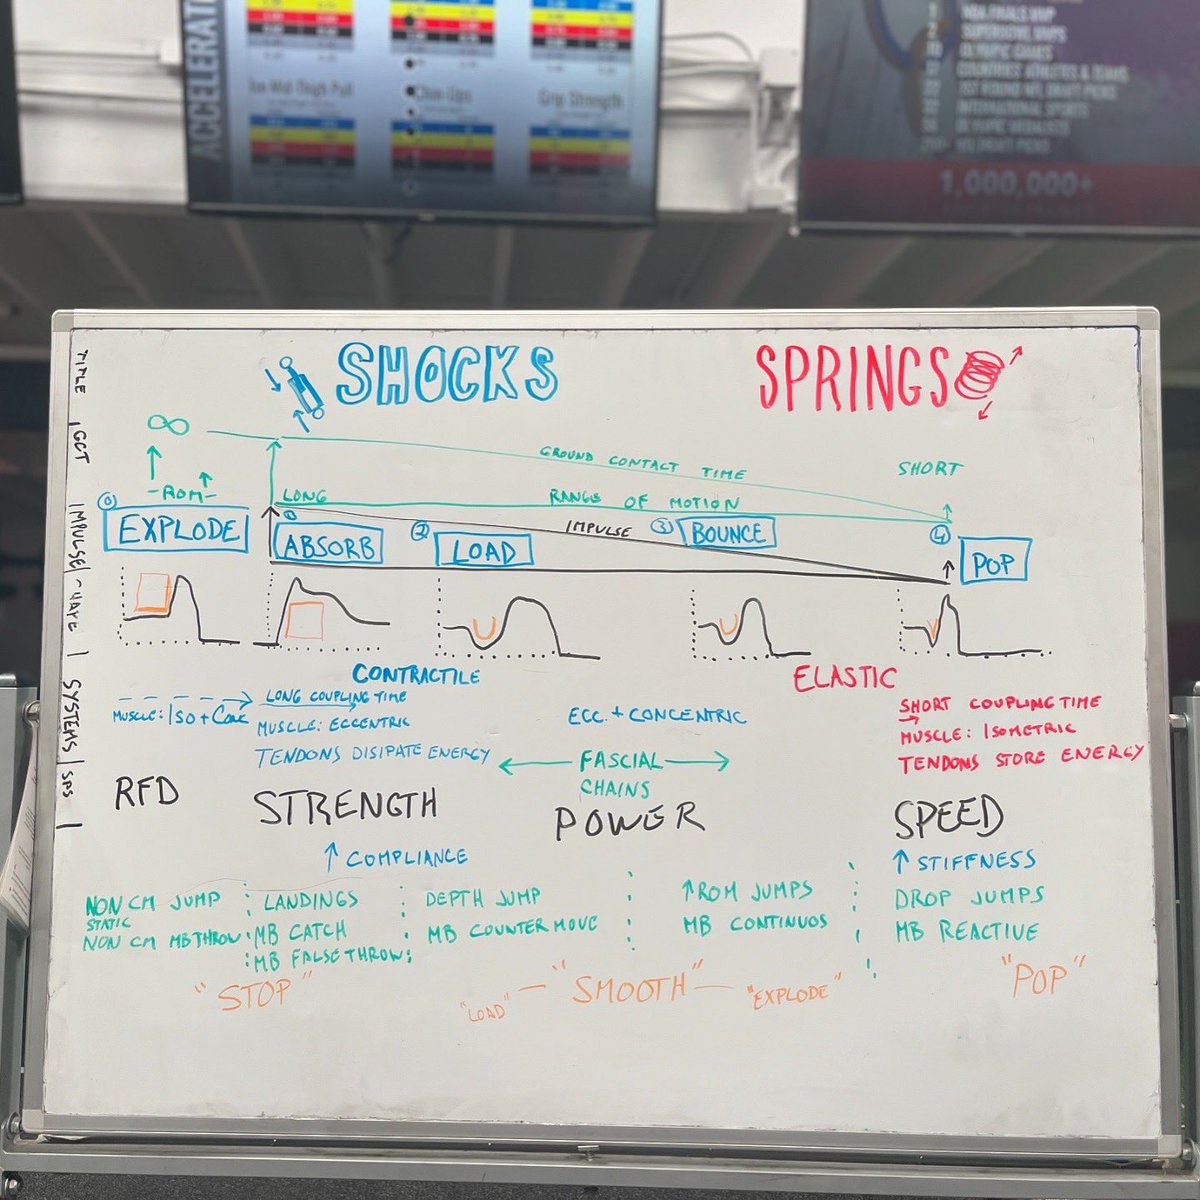 ACCELERAT
Iso Mid-Thigh Pull
Chin-Ups
Grip Strength
NBA FINALS MVP
SUPERBOWL MVPS
OLYMPIC GAMES
COUNTRIES' ATHLETES & TEAMS
1ST ROUND NFL DRAFT PICKS
INTERNATIONAL SPORTS
OLYMPIC MEDALISTS
NFL DRAFT PICKS
1,000,000+
TITLE
SHOCKS
SPRINGS
GCT
∞
GROUND CONTACT TIME
SHORT
-ROM-
LONG
RANGE OF MOTION
IMPULSE
IMPULSE
0
EXPLODE
ABSORB
2
LOAD
3
BOUNCE
4
POP
CONTRACTILE
ELASTIC
SYSTEMS
MUSCLE: ISO + CONC
LONG COUPLING TIME
MUSCLE: ECCENTRIC
TENDONS DISIPATE ENERGY
ECC. + CONCENTRIC
FASCIAL
CHAINS
SHORT COUPLING TIME
MUSCLE: ISOMETRIC
TENDONS STORE ENERGY
SPS
RFD
STRENGTH
POWER
SPEED
↑ COMPLIANCE
↑ STIFFNESS
NON CM JUMP
STATIC
NON CM MB THROW
LANDINGS
MB CATCH
MB FALSE THROW
DEPTH JUMP
MB COUNTER MOVE
↑ROM JUMPS
MB CONTINUOS
DROP JUMPS
MB REACTIVE
"STOP"
"LOAD" — "SMOOTH" — "EXPLODE"
"POP"